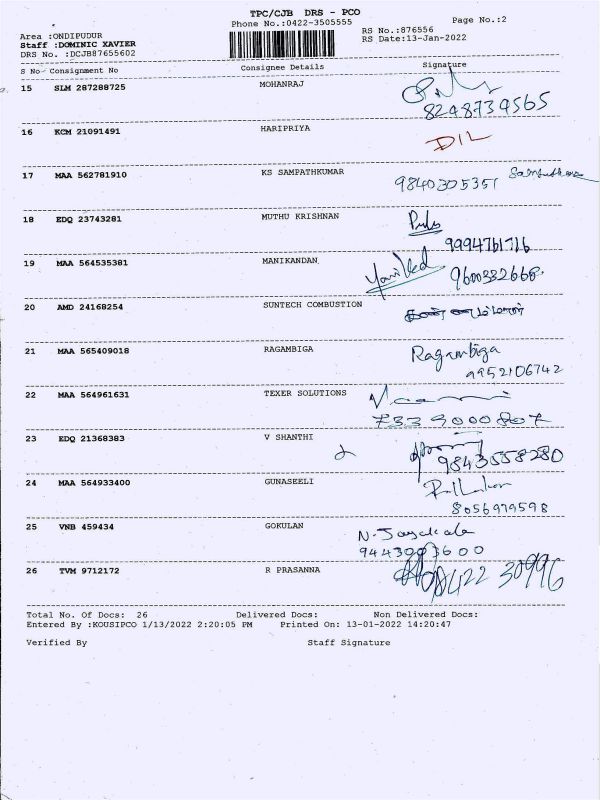 TPC/CJB DRS - PCO
Phone No.:0422-3505555
Page No.:2
Area :ONDIPUDUR
RS No.:876556
Staff :DOMINIC XAVIER
RS Date:13-Jan-2022
DRS No. :DCJB87655602
S No Consignment No Consignee Details Signature
15 SLM 287288725 MOHANRAJ
8248739565
16 KCM 21091491 HARIPRIYA
DIL
17 MAA 562781910 KS SAMPATHKUMAR
9840305351
18 EDQ 23743281 MUTHU KRISHNAN
9994761716
19 MAA 564535381 MANIKANDAN
9600332668
20 AMD 24168254 SUNTECH COMBUSTION
21 MAA 565409018 RAGAMBIGA
Ragambiga
9952106742
22 MAA 564961631 TEXER SOLUTIONS
7339000807
23 EDQ 21368383 V SHANTHI
9843558280
24 MAA 564933400 GUNASEELI
8056979598
25 VNB 459434 GOKULAN
N. Jayakala
26 TVM 9712172 R PRASANNA
Total No. Of Docs: 26 Delivered Docs: Non Delivered Docs:
Entered By :KOUSIPCO 1/13/2022 2:20:05 PM Printed On: 13-01-2022 14:20:47
Verified By Staff Signature